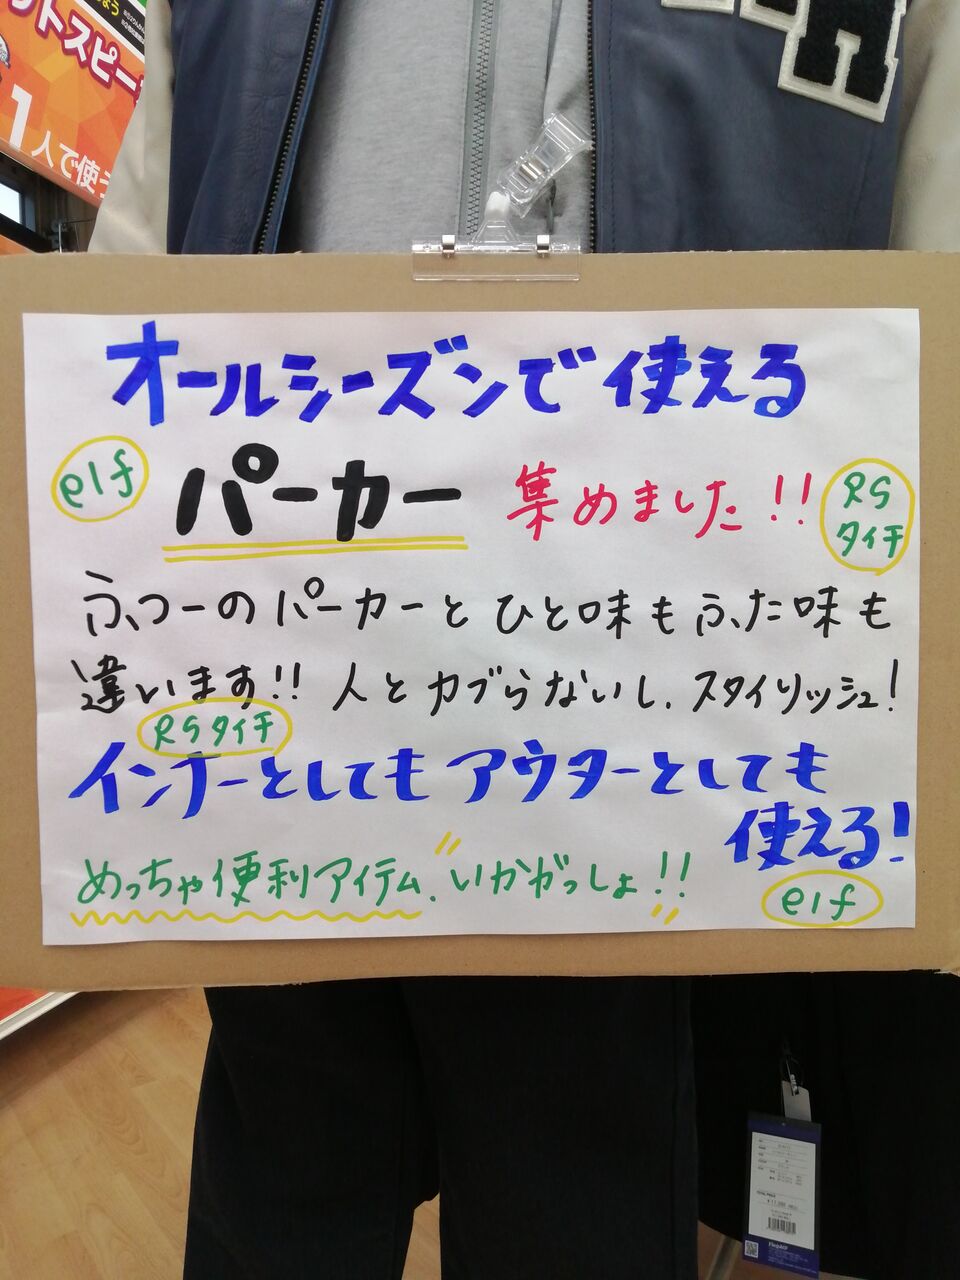 トスピー
1人で使う
オールシーズンで使える
elf
パーカー 集めました!!
RS
タイチ
ふつーのパーカーとひと味もふた味も
違います!! 人とカブらないし、スタイリッシュ!
RSタイチ
インナーとしてもアウターとしても
使える!
めっちゃ便利アイテム、いかがっしょ!!
elf